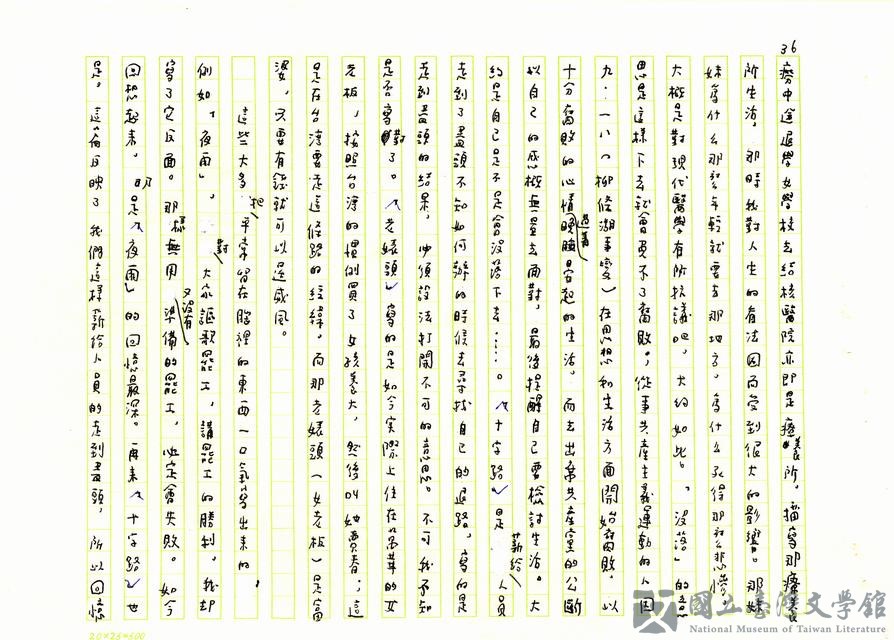 36
癆中途退學女學校去給核醫院亦即是療養所。描寫那療養
所生活。那時我對人生的看法因而受到很大的影響。那妹
妹為什么那麽年輕就要去那地方。為什么死得那麽悲慘
大概是對現代醫學有所抗議吧。大約如此。「沒落」的意
思是這樣下去就會免不了腐敗。從事共產主義運動的人因
九.一八(柳條湖事變)在思想和生活方面開始腐敗。以
十分腐敗的心情過着晚睡晏起的生活。而去出席共產黨的公斷
以自己的感概無量去面對,最後提醒自己要檢討生活。大
約是自己是不是會沒落下去……。「十字路」是薪給人員
走到了盡頭不知如何辦的時候去尋找自己的退路,寫的是
走到盡頭的結果,必須設法打開不可的意思。不可我不知
是否寫對了。「老婊頭」寫的是如今実際上住在萬華的女
老板,按照台湾的慣例買了女孩養大,然後叫她賣春;這
是在台湾要走這條路的経緯。而那老婊頭(女老板)是富
婆,只要有錢就可以逞威風。
這些大多把平常留在腦裡的東西一口氣寫出來的,
例如,「夜雨」,對大家謳歌罷工,講罷工的勝利,我却
寫了它反面。那樣無用又沒有準備的罷工,必定會失敗。如今
回想起來,明是「夜雨」的回憶最深。再來「十字路」也
是,這篇反映了我們這樣薪給人員的走到盡頭,所以回憶
20×25=500
國立臺灣文學館
National Museum of Taiwan Literature